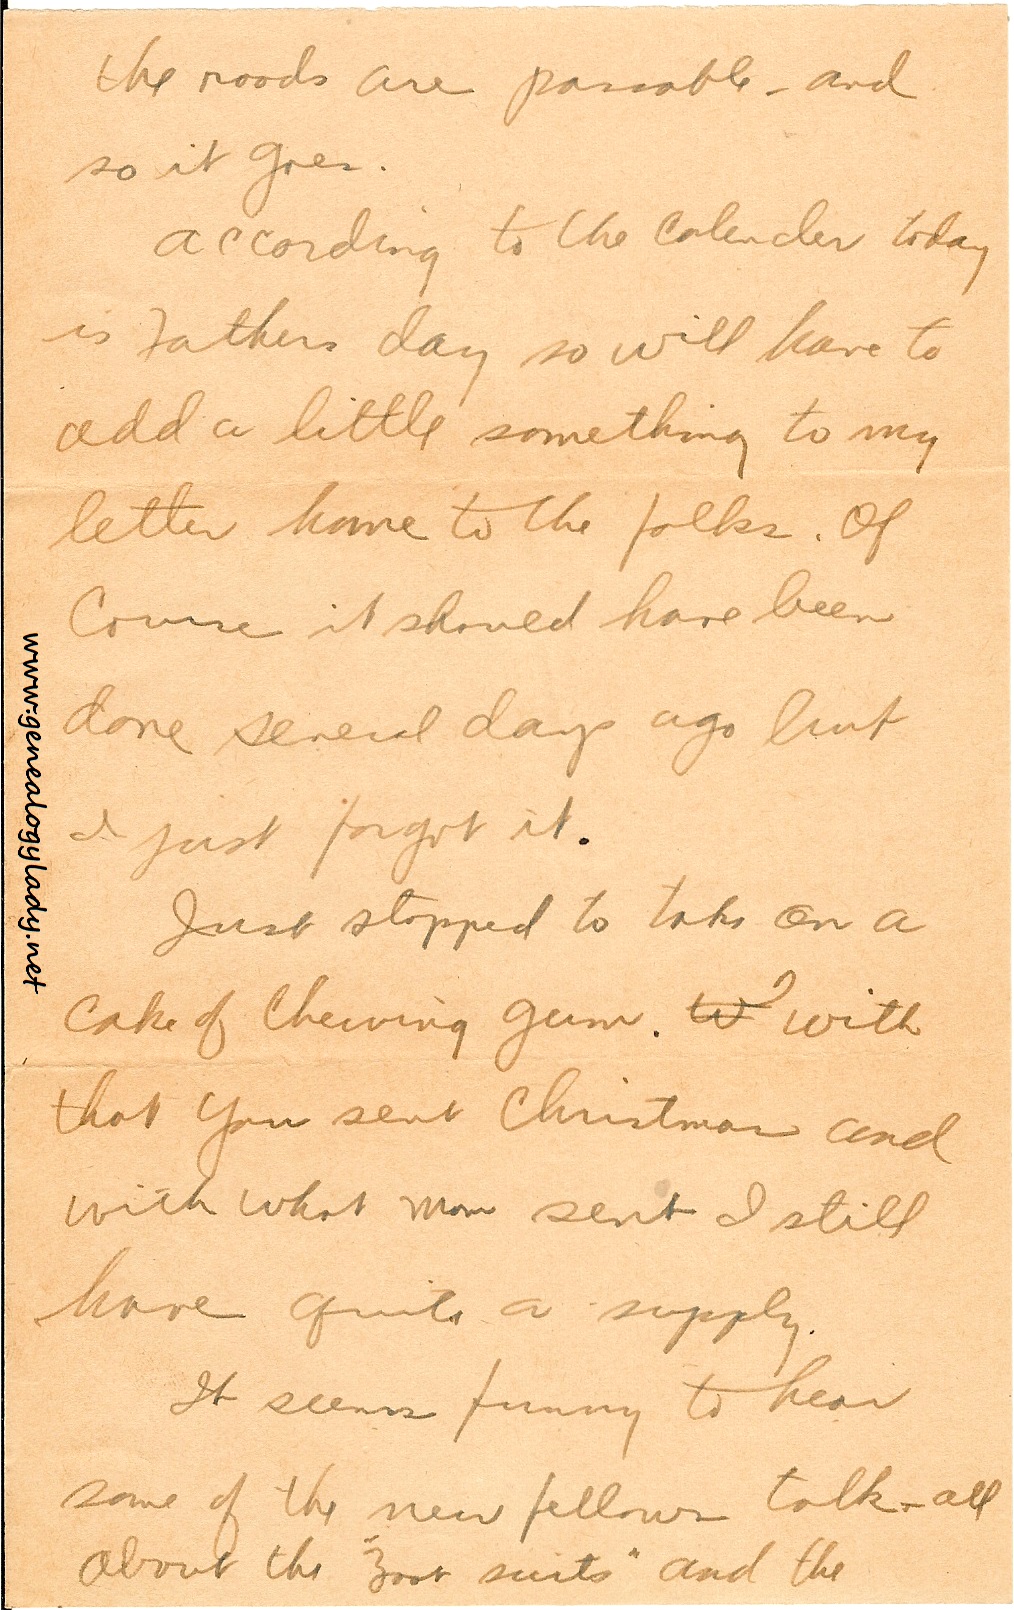 the roads are passable - and
so it goes.
According to the calender today
is Fathers day so will have to
add a little something to my
letter home to the folks. Of
Course it should have been
done several days ago but
I just forgot it.
Just stopped to take on a
cake of Chewing gum. W with
that you sent Christmas and
with what mom sent I still
have quite a supply.
It seems funny to hear
some of the new fellows talk - all
about the "Zoot suits" and the
www.genealogylady.net